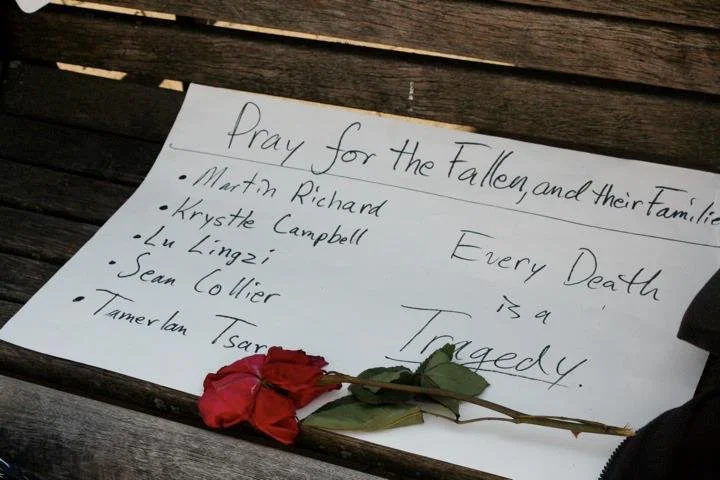 Pray for the Fallen, and their Familie
• Martin Richard
• Krystle Campbell
• Lu Lingzi
• Sean Collier
• Tamerlan Tsar
Every Death
is a
Tragedy.